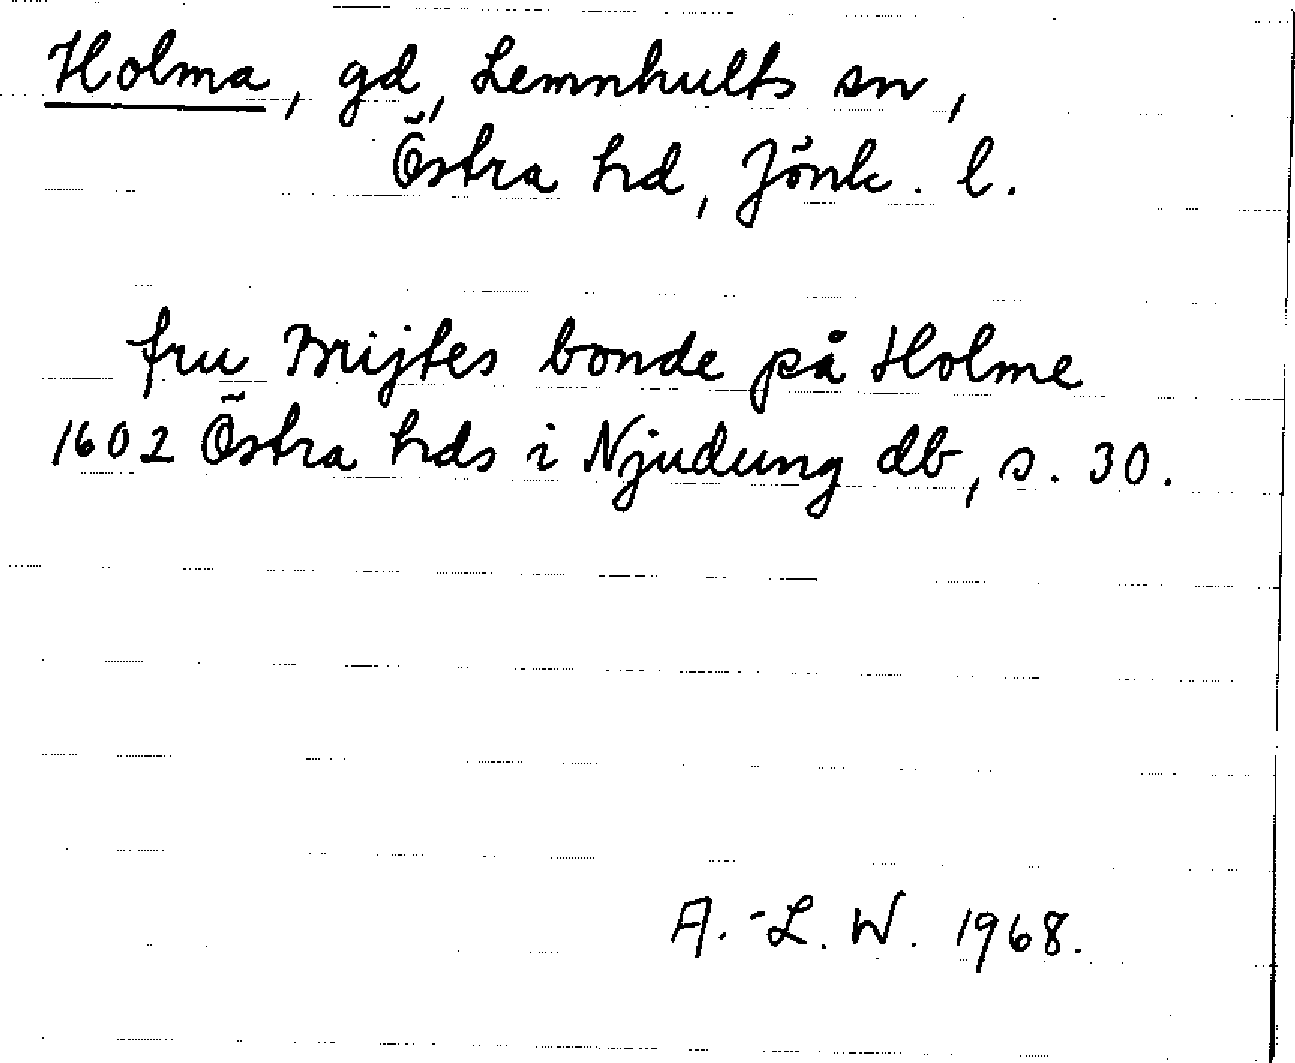 Holma, gd, Lemnhults sn,
Östra hd, Jönk. l.
fru Brijtes bonde på Holme
1602 Östra hds i Njudung db, s. 30.
A.-L. W. 1968.